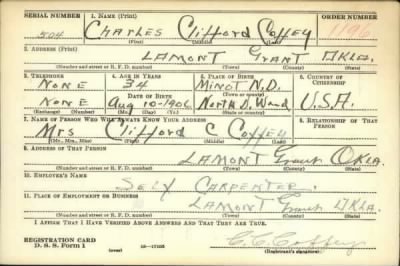 SERIAL NUMBER 1. NAME (Print) ORDER NUMBER
504 CHARLES Clifford Coffey 1196
(First) (Middle) (Last)
2. ADDRESS (Print)
LAMONT Grant OKLA.
(Number and street or R. F. D. number) (Town) (County) (State)
3. TELEPHONE 4. AGE IN YEARS 5. PLACE OF BIRTH 6. COUNTRY OF CITIZENSHIP
NONE 34 MINOT N.D.
DATE OF BIRTH (Town or county)
NONE Aug 10-1906 North D. Ward U.S.A.
(Exchange) (Number) (Mo.) (Day) (Yr.) (State or country)
7. NAME OF PERSON WHO WILL ALWAYS KNOW YOUR ADDRESS 8. RELATIONSHIP OF THAT PERSON
Mrs Clifford C Coffey
(Mr., Mrs., Miss) (First) (Middle) (Last)
9. ADDRESS OF THAT PERSON
LAMONT Grant OKLA.
(Number and street or R. F. D. number) (Town) (County) (State)
10. EMPLOYER'S NAME
SELF CARPENTER
11. PLACE OF EMPLOYMENT OR BUSINESS
LAMONT Grant OKLA.
(Number and street or R. F. D. number) (Town) (County) (State)
I AFFIRM THAT I HAVE VERIFIED ABOVE ANSWERS AND THAT THEY ARE TRUE.
REGISTRATION CARD
D. S. S. Form 1 (over) C. C. Coffey
(Registrant's signature)